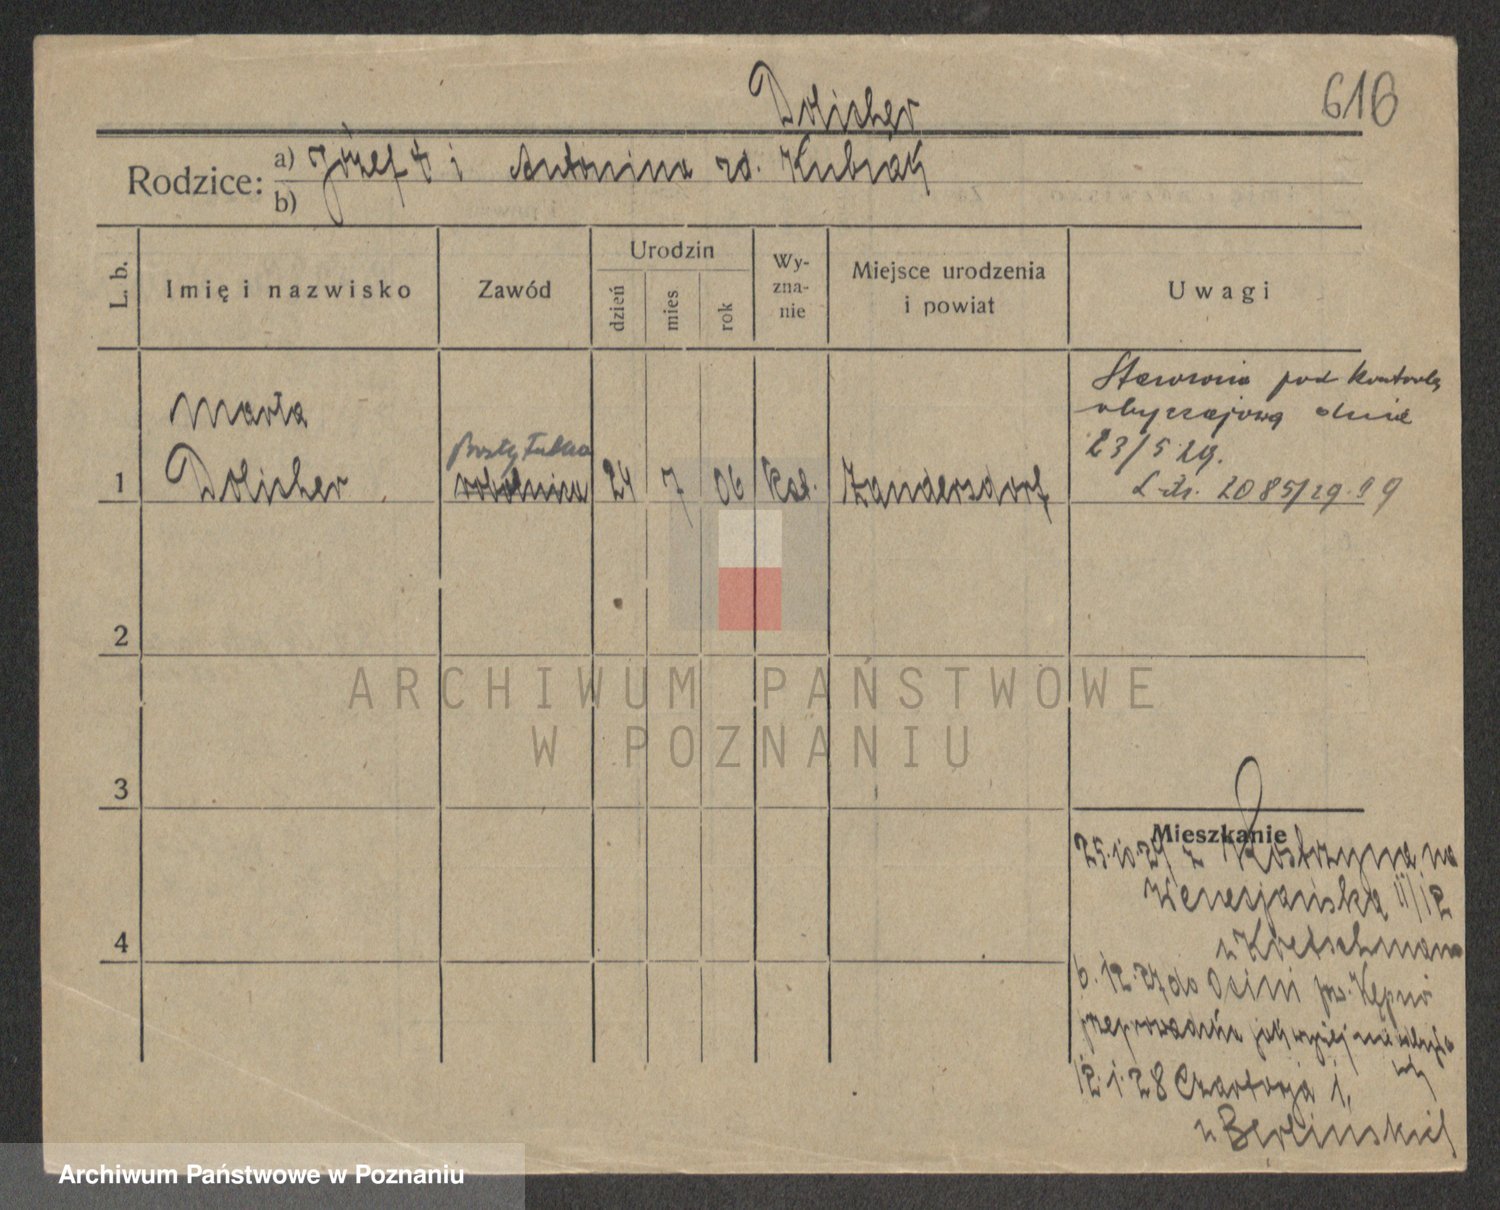 Dolscher
616
Rodzice: a) Józef † i Antonina rd. Kubiak
b)
L. b.
Imię i nazwisko
Zawód
Urodzin
dzień
mies
rok
Wy-
zna-
nie
Miejsce urodzenia
i powiat
Uwagi
Marta
1 Dolscher
robotnica
24 7 06 kat. Zandersdorf
pod kontrolą
obyczajową dnia
23/5 29.
L. dz. 2085/29.
2
3
4
Mieszkanie
25.10.27 z Kostrzyna na
Wenecjańska 11/12
u Kretschmana
6.12.27 do Osini pw. Kępno
12.1.28 Czartorja 1,
u Berlińskiej
ARCHIWUM PAŃSTWOWE
W POZNANIU
Archiwum Państwowe w Poznaniu